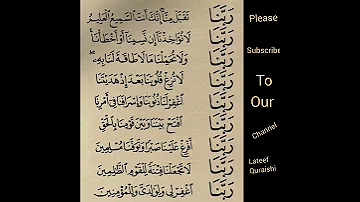 رَبَّنَا تَقَبَّلْ مِنَّا إِنَّكَ أَنتَ السَّمِيعُ الْعَلِيمُ
رَبَّنَا لَا تُؤَاخِذْنَا إِن نَّسِينَا أَوْ أَخْطَأْنَا
رَبَّنَا وَلَا تُحَمِّلْنَا مَا لَا طَاقَةَ لَنَا بِهِ
رَبَّنَا لَا تُزِغْ قُلُوبَنَا بَعْدَ إِذْ هَدَيْتَنَا
رَبَّنَا اغْفِرْ لَنَا ذُنُوبَنَا وَإِسْرَافَنَا فِي أَمْرِنَا
رَبَّنَا افْتَحْ بَيْنَنَا وَبَيْنَ قَوْمِنَا بِالْحَقِّ
رَبَّنَا أَفْرِغْ عَلَيْنَا صَبْرًا وَتَوَفَّنَا مُسْلِمِينَ
رَبَّنَا لَا تَجْعَلْنَا فِتْنَةً لِّلْقَوْمِ الظَّالِمِينَ
رَبَّنَا اغْفِرْ لِي وَلِوَالِدَيَّ وَلِلْمُؤْمِنِينَ
Please
Subscribe
To
Our
Channel
Lateef
Quraishi